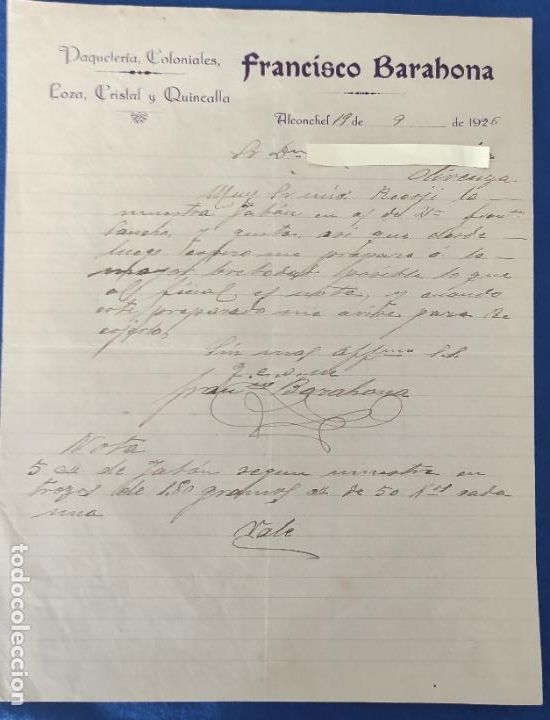 Paquetería, Coloniales,
Loza, Cristal y Quincalla
Francisco Barahona
Alconchel 19 de 9 de 1926
Sr Dn
Olivenza
Muy Sr mio: Recojí la
muestra jabón en c/ de Dn Franco
Sancho, y gusta, asi que desde
luego espero me prepare á la
mayor brebedad posible lo que
al final se nota, y cuando
este preparado me avise para Re
cojerlo,
Sin mas affmo S.S.
q.e.s.m.
Franco Barahona
Nota
5 c/ de Jabón segun muestra en
trozos de 180 gramos c/ de 50 Kos cada
una
Vale
todocoleccion